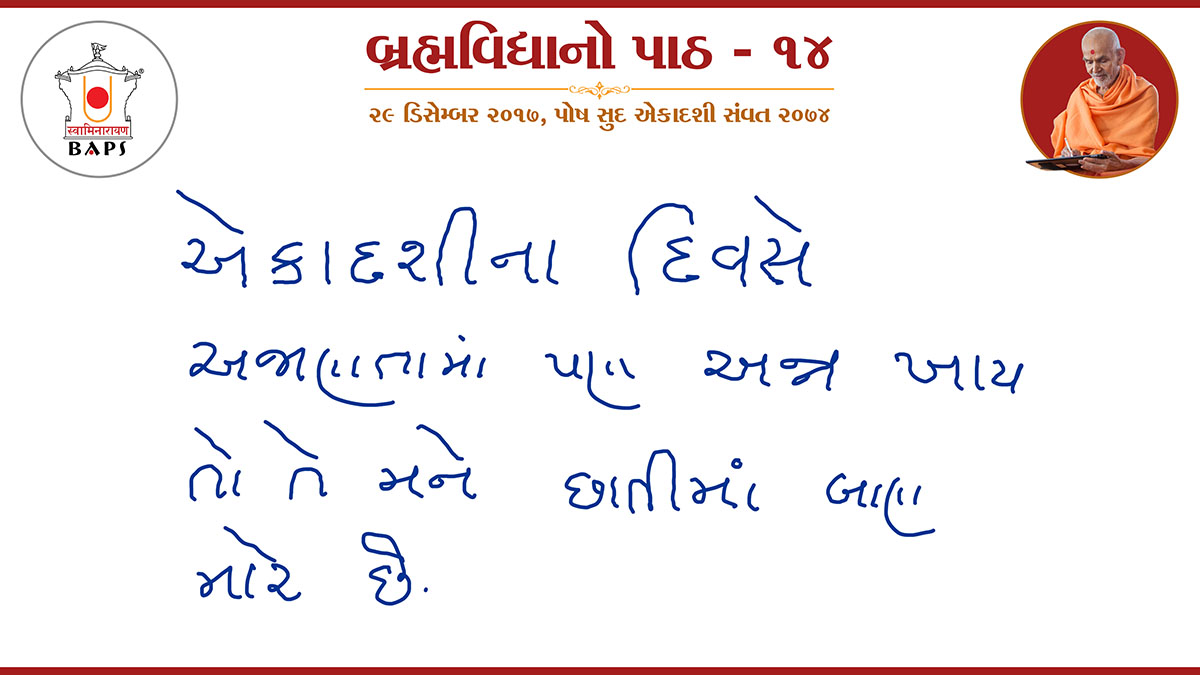 બ્રહ્મવિદ્યાનો પાઠ - ૧૪
૨૯ ડિસેમ્બર ૨૦૧૭, પોષ સુદ એકાદશી સંવત ૨૦૭૪
स्वामिनारायण
BAPS
એકાદશીના દિવસે
અજાણતામાં પણ અન્ન ખાય
તો તે મને છાતીમાં બાણ
મારે છે.